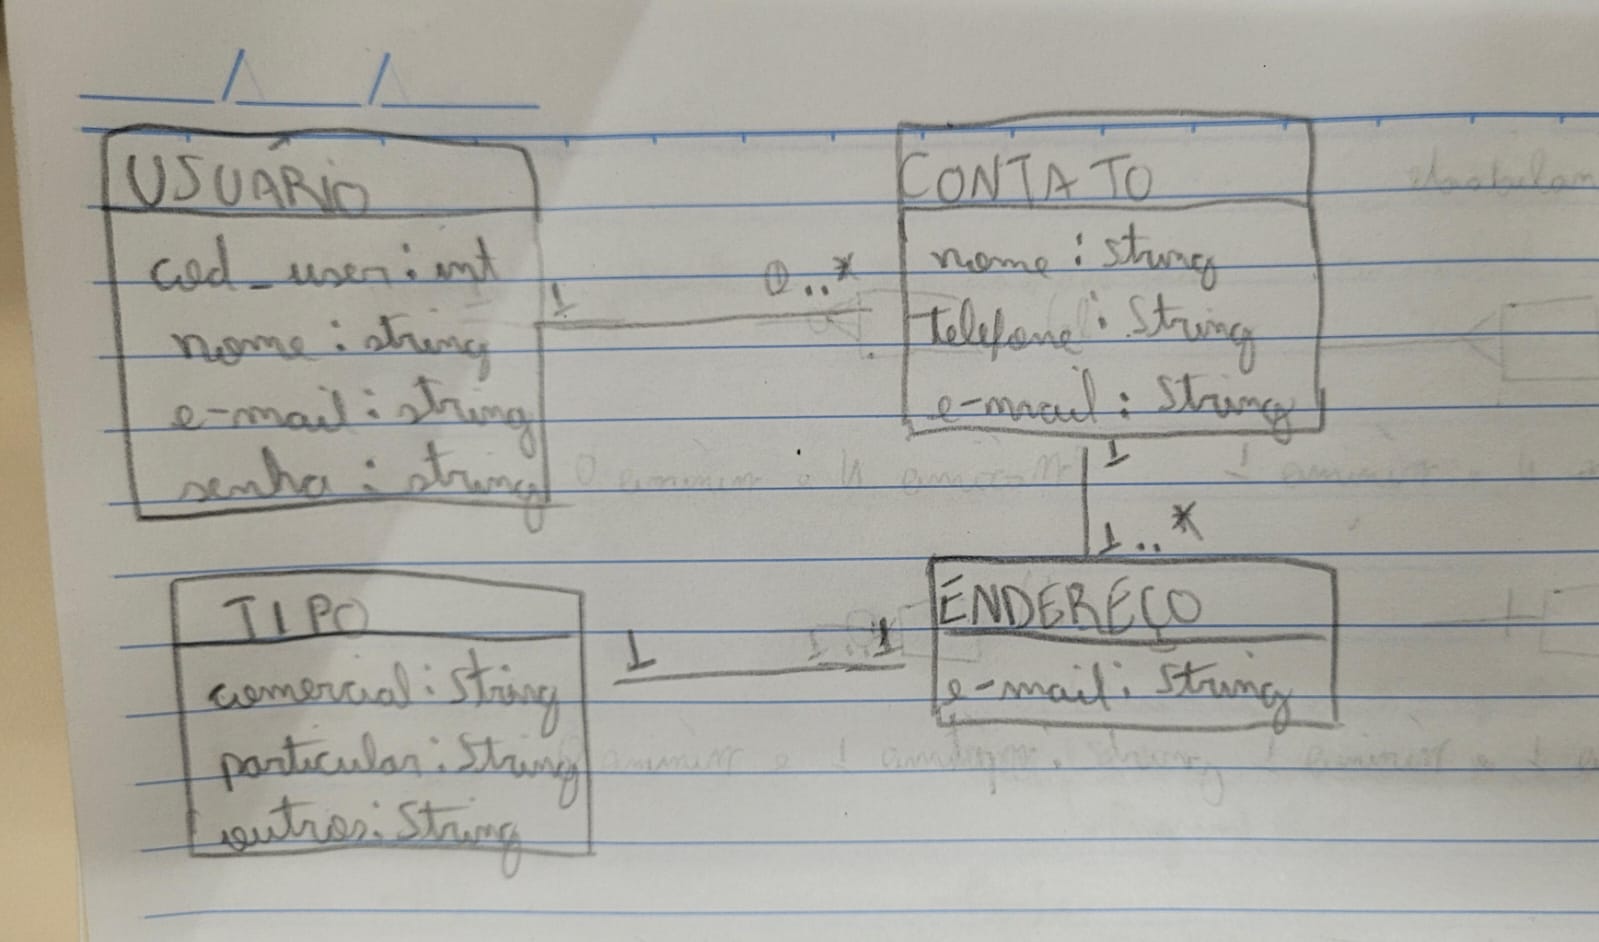 USUÁRIO
cod_user: int
nome: string
e-mail: string
senha: string
1
0..*
CONTATO
nome: string
telefone: String
e-mail: String
1
1..*
TIPO
comercial: String
particular: String
outros: String
1
1
ENDEREÇO
e-mail: String